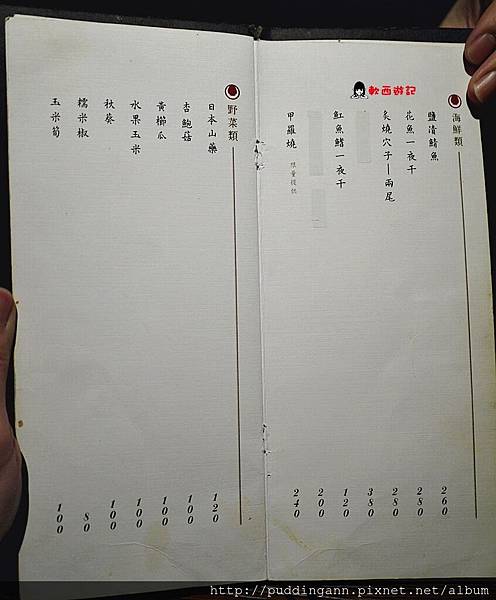 軟西遊記
海鮮類
鹽漬鯖魚 260
花魚一夜干 280
炙燒穴子—兩尾 280
380
魟魚鰭一夜干 120
200
甲羅燒 限量提供 240
野菜類
日本山藥 120
杏鮑菇 100
黃櫛瓜 100
水果玉米 100
秋葵 100
糯米椒 80
玉米筍 100
http://puddingann.pixnet.net/album